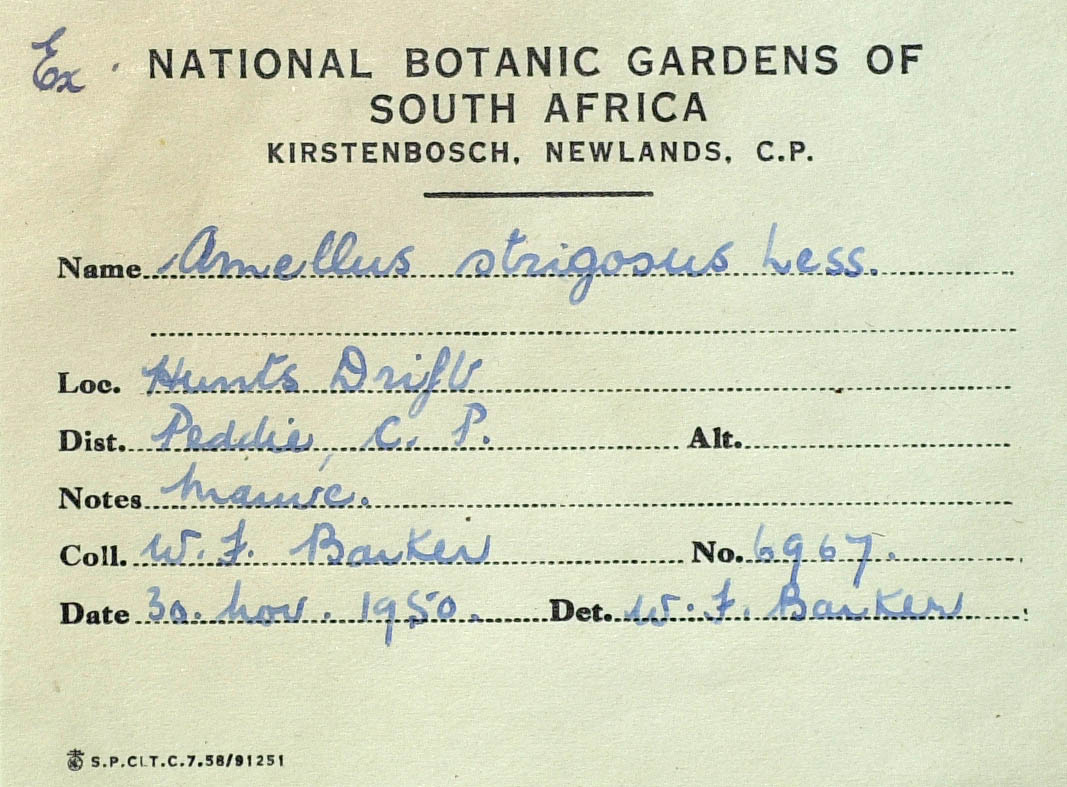 Ex. NATIONAL BOTANIC GARDENS OF
SOUTH AFRICA
KIRSTENBOSCH, NEWLANDS, C.P.
Name Amellus strigosus Less.
Loc. Hunts Drift
Dist. Peddie, C. P. Alt.
Notes Mauve.
Coll. W. F. Barker No. 6967.
Date 30. Nov. 1950. Det. W. F. Barker
S.P.CLT.C.7.58/91251